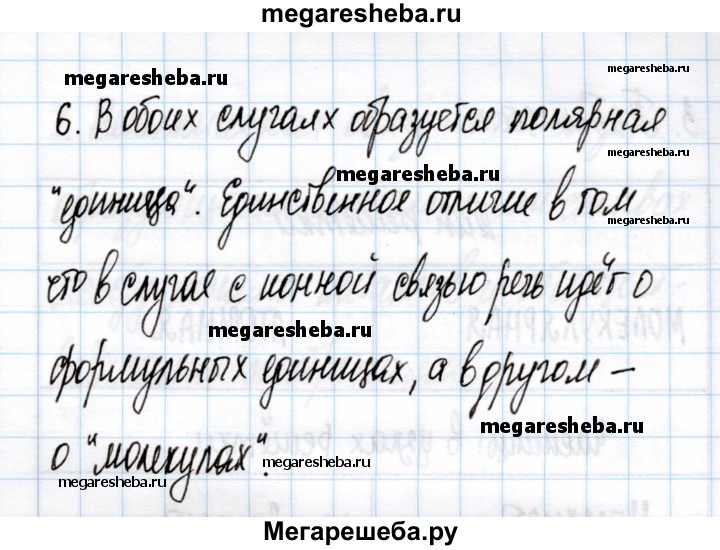 megaresheba.ru
megaresheba.ru
megaresheba.ru
6. В обоих случаях образуется полярная
megaresheba.ru
megaresheba.ru
"единица". Единственное отличие в том
megaresheba.ru
что в случае с ионной связью речь идёт о
megaresheba.ru
формульных единицах, а в другом –
megaresheba.ru
о "молекулах".
megaresheba.ru
megaresheba.ru
megaresheba.ru
Мегарешеба.ру